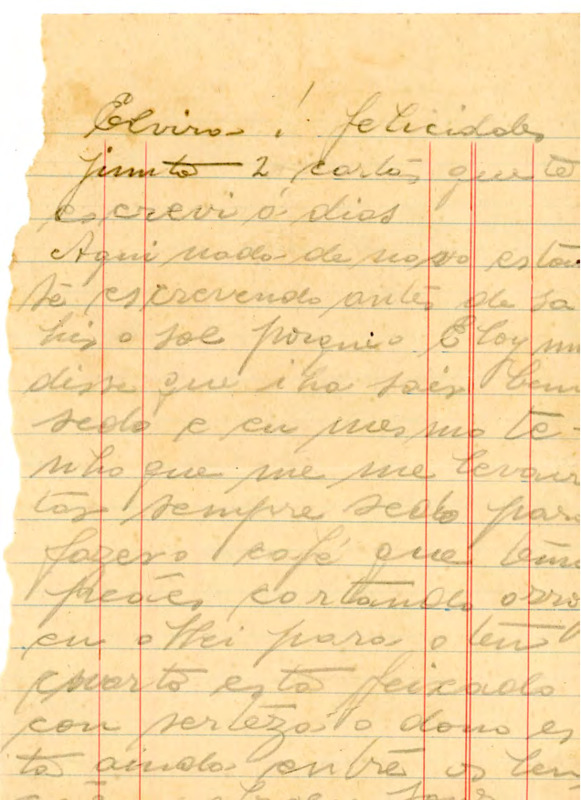 Elvira ! felicidades
junto 2 cartas que te
escrevi á dias
Aqui nada de novo estou
te escrevendo antes de sa
hir o sol porque o Eloy me
disse que iha sair bem
sedo e eu mesmo te-
nho que me me levan
tar sempre sedo para
fazer o café que tem
peões cortando arro
eu olhei para o teu
quarto esta feixado
con serteza o dono es
ta ainda entre os len